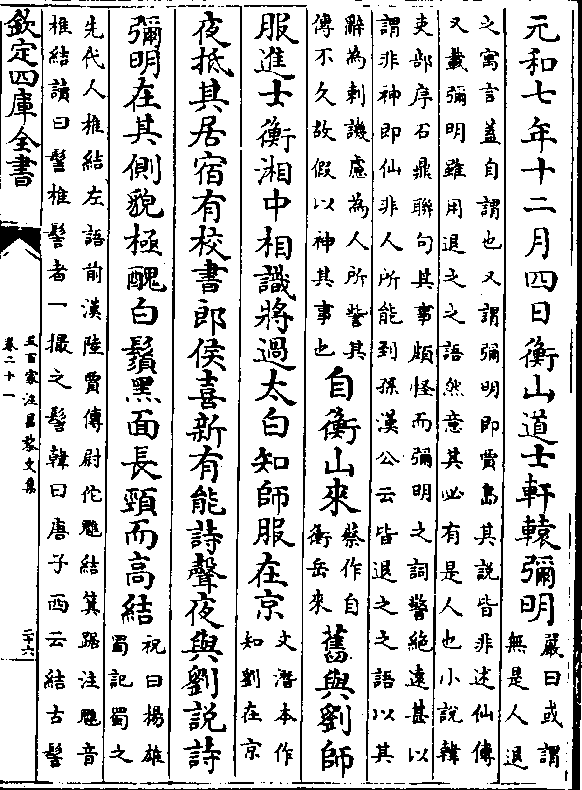 元和七年十二月四日衡山道士軒轅彌明嚴曰或謂
無是人退
之寓言蓋自謂也又謂彌明即賈島其說皆非述仙傳
又載彌明雖用退之之語然意其必有是人也小說韓
吏部序石鼎聯句其事頗怪而彌明之詞警絶遠甚以
謂非神即仙非人所能到孫漢公云皆退之之語以其
辭為刺譏慮為人所訾其
傳不久故假以神其事也
自衡山來蔡作自
衡岳來
舊與劉師
服進士衡湘中相識將過太白知師服在京文潛本作
知劉在京
夜抵其居宿有校書郎侯喜新有能詩聲夜與劉說詩
彌明在其側貌極醜白鬚黑面長頸而高結祝曰楊雄
蜀記蜀之
先代人椎結左語前漢陸賈傳尉佗魋結箕踞注魋音
椎結讀曰髻椎髻者一撮之髻韓曰唐子西云結古髻
欽定四庫全書
五百家注昌黎文集
卷二十一
二十六